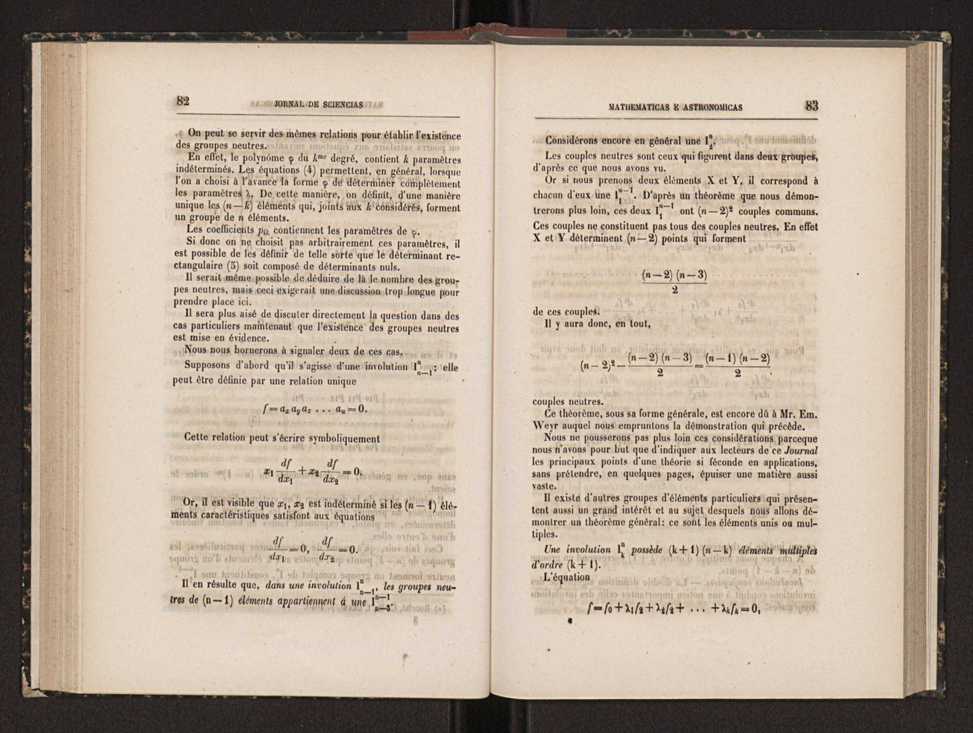 82 JORNAL DE SCIENCIAS
On peut se servir des mêmes relations pour établir l'existence
des groupes neutres.
En effet, le polynôme φ du k^me degré, contient k paramètres
indéterminés. Les équations (4) permettent, en général, lorsque
l'on a choisi à l'avance la forme φ de déterminer complètement
les paramètres λ. De cette manière, on définit, d'une manière
unique les (n — k) éléments qui, joints aux k considérés, forment
un groupe de n éléments.
Les coefficients contiennent les paramètres de φ.
Si donc on ne choisit pas arbitrairement ces paramètres, il
est possible de les définir de telle sorte que le déterminant re-
ctangulaire (5) soit composé de déterminants nuls.
Il serait même possible de déduire de là le nombre des grou-
pes neutres, mais ceci exigerait une discussion trop longue pour
prendre place ici.
Il sera plus aisé de discuter directement la question dans des
cas particuliers maintenant que l'existence des groupes neutres
est mise en évidence.
Nous nous bornerons à signaler deux de ces cas.
Supposons d'abord qu'il s'agisse d'une involution I^n_{n—1}; elle
peut être définie par une relation unique
f = a_x a_y a_z . . . a_u = 0.
Cette relation peut s'écrire symboliquement
x_1 df/dx_1 + x_2 df/dx_2 = 0,
Or, il est visible que x_1, x_2 est indéterminé si les (n — 1) élé-
ments caractéristiques satisfont aux équations
df/dx_1 = 0, df/dx_2 = 0.
Il en résulte que, dans une involution I^n_{n—1}, les groupes neu-
tres de (n — 1) éléments appartiennent á une I^{n—1}_{n—3}.
MATHEMATICAS E ASTRONOMICAS 83
Considérons encore en général une I^n_2.
Les couples neutres sont ceux qui figurent dans deux groupes,
d'après ce que nous avons vu.
Or si nous prenons deux éléments X et Y, il correspond à
chacun d'eux une I^{n—1}_1. D'après un théorème que nous démon-
trerons plus loin, ces deux I^{n—1}_1 ont (n — 2)² couples communs.
Ces couples ne constituent pas tous des couples neutres. En effet
X et Y déterminent (n — 2) points qui forment
(n — 2) (n — 3)
2
de ces couples.
Il y aura donc, en tout,
(n — 2)² — (n — 2) (n — 3)/2 = (n — 1) (n — 2)/2
couples neutres.
Ce théorème, sous sa forme générale, est encore dû à Mr. Em.
Weyr auquel nous empruntons la démonstration qui précède.
Nous ne pousserons pas plus loin ces considérations parceque
nous n'avons pour but que d'indiquer aux lectéurs de ce Journal
les principaux points d'une théorie si féconde en applications,
sans prétendre, en quelques pages, épuiser une matière aussi
vaste.
Il existe d'autres groupes d'éléments particuliers qui présen-
tent aussi un grand intérêt et au sujet desquels nous allons dé-
montrer un théorème général: ce sont les éléments unis ou mul-
tiples.
Une involution I^n_k possède (k + 1) (n — k) éléments multiples
d'ordre (k + 1).
L'équation
f = f_0 + λ_1f_2 + λ_2f_2 + . . . + λ_kf_k = 0,